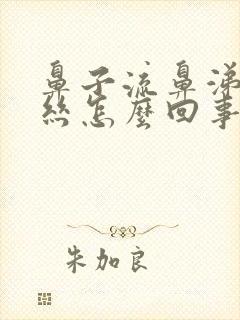 鼻子流鼻涕
丝怎麼回事
朱加良